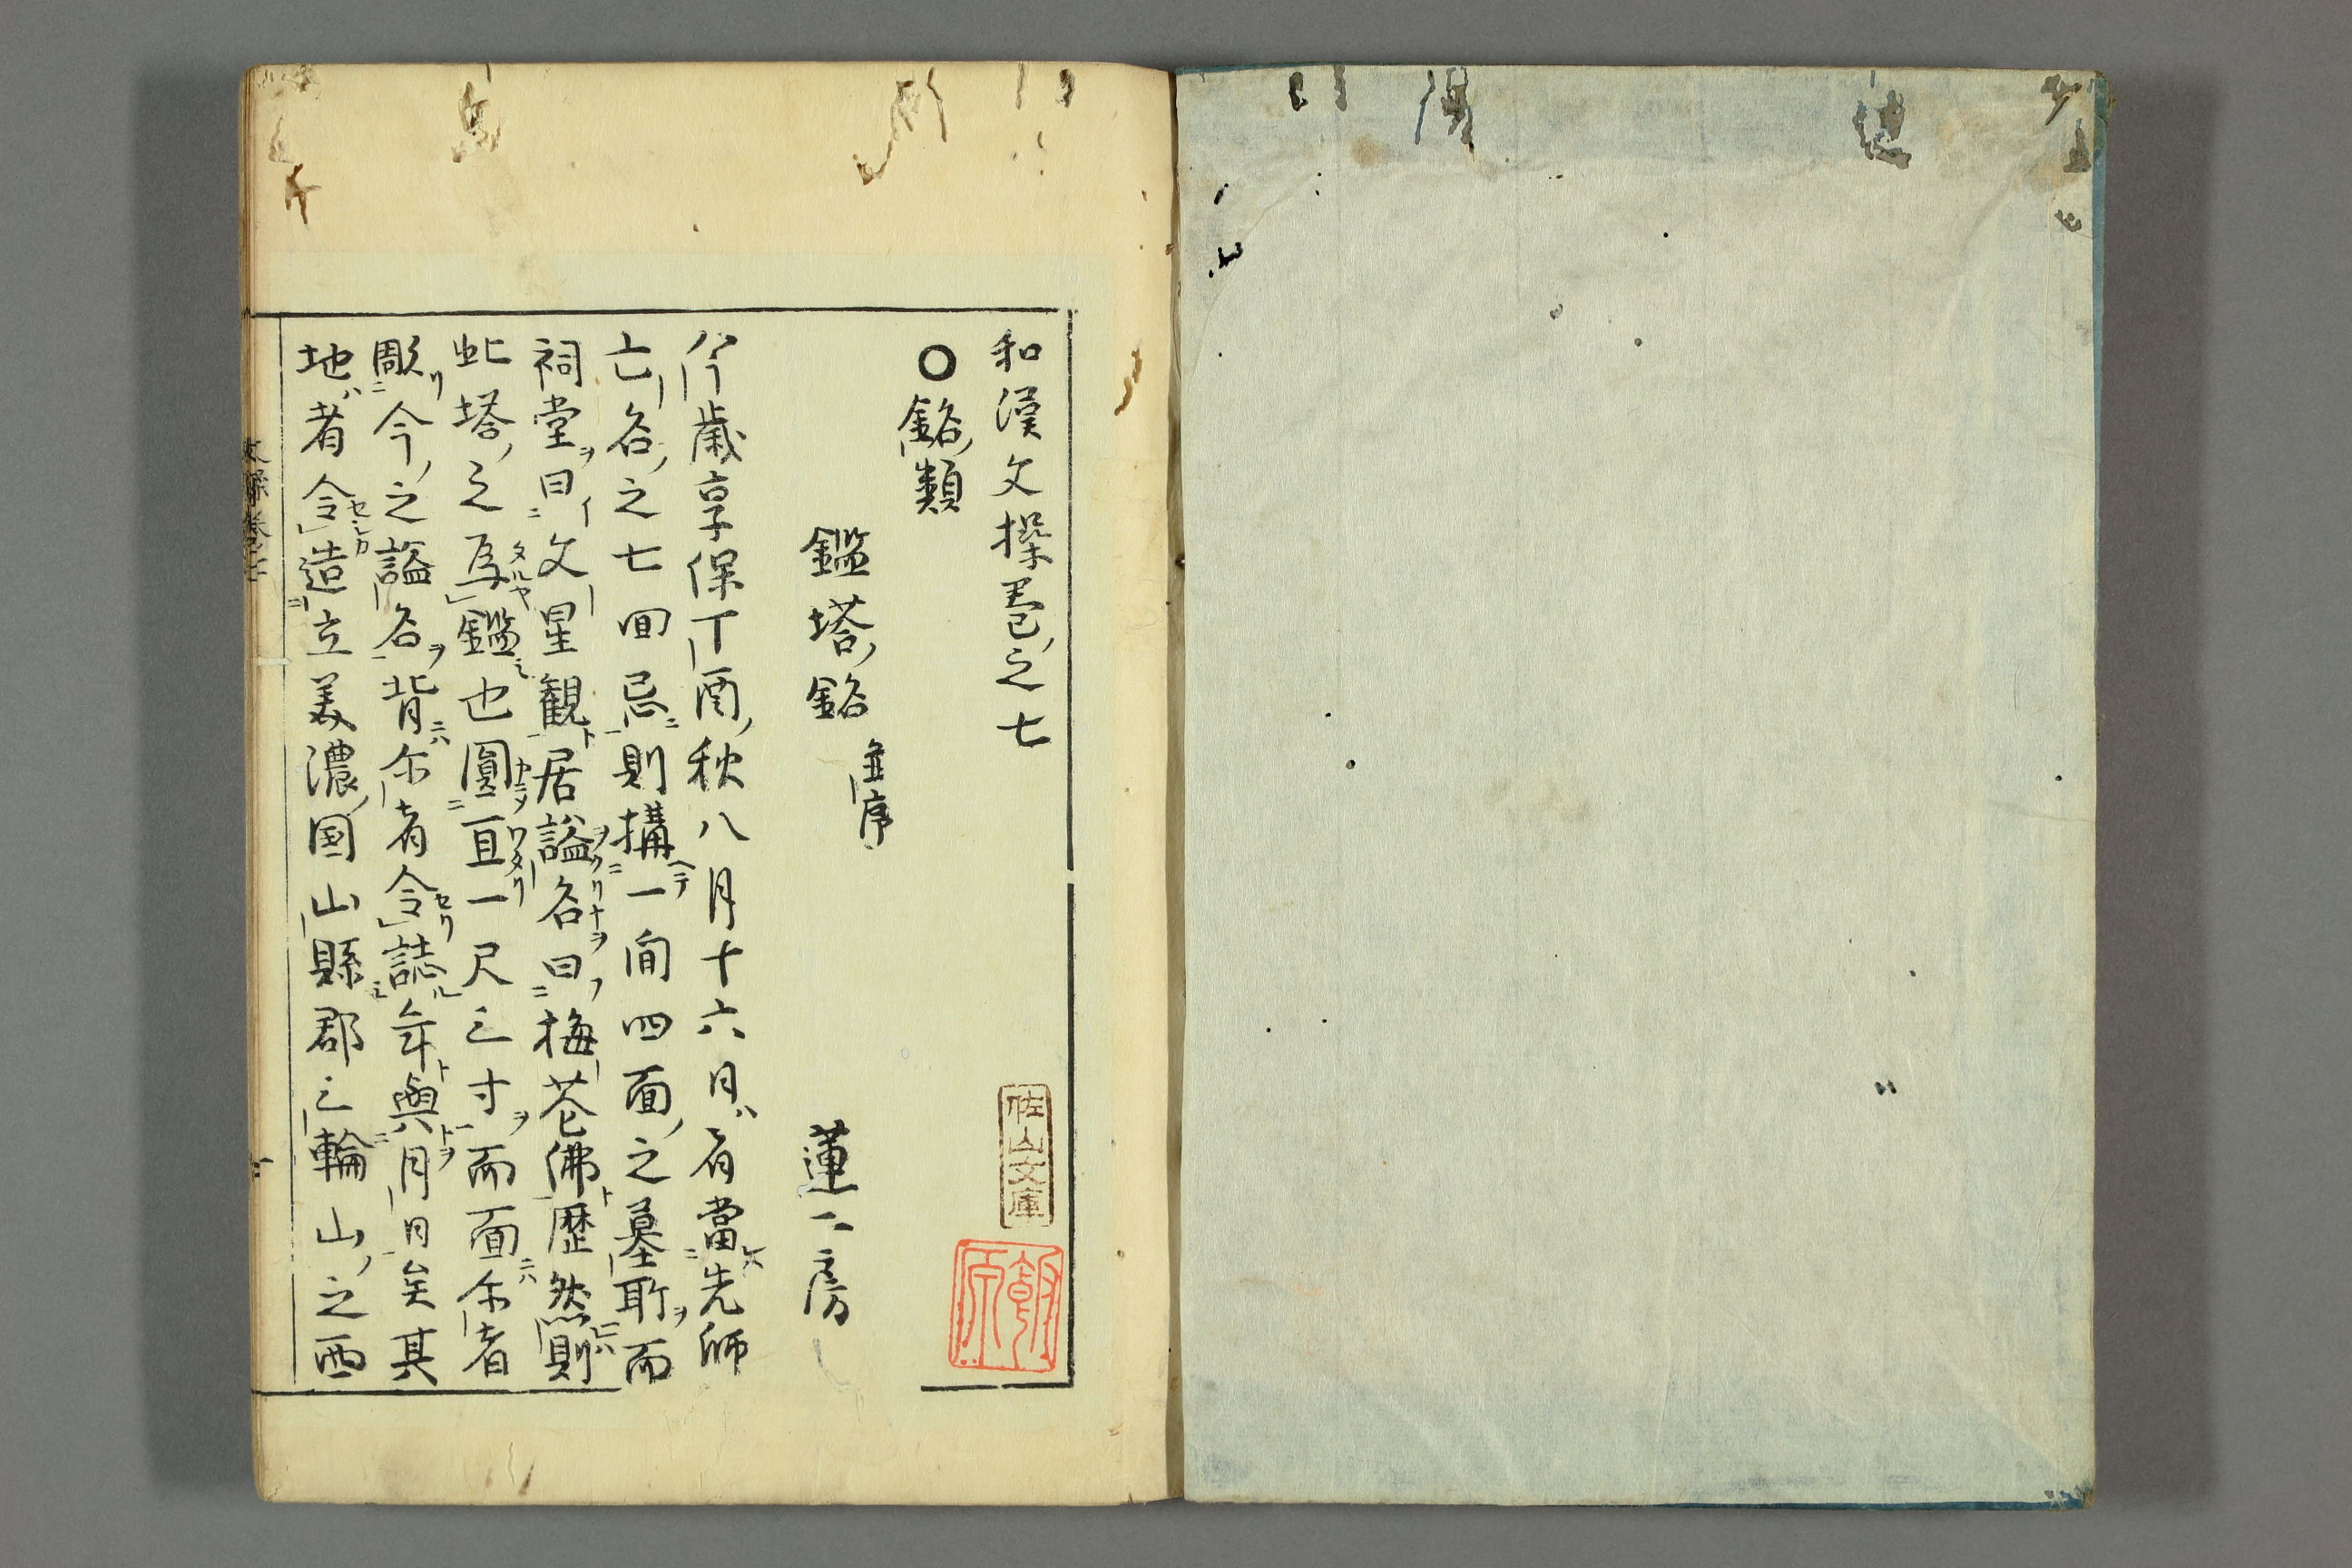 和漢文操巻之七
〇銘類
鑑塔銘 並序
蓮二房
今歳享保丁酉秋八月十六日者當先師
亡名之七回忌則搆一間四面之墓所而
祠堂曰文星観居謚名曰梅花佛歴然則
此塔之為鑑也圓亘一尺三寸而面尓者
彫今之謚名背尓者令誌年與月日矣其
地者令造立美濃国山縣郡三輪山之西
佐山文庫